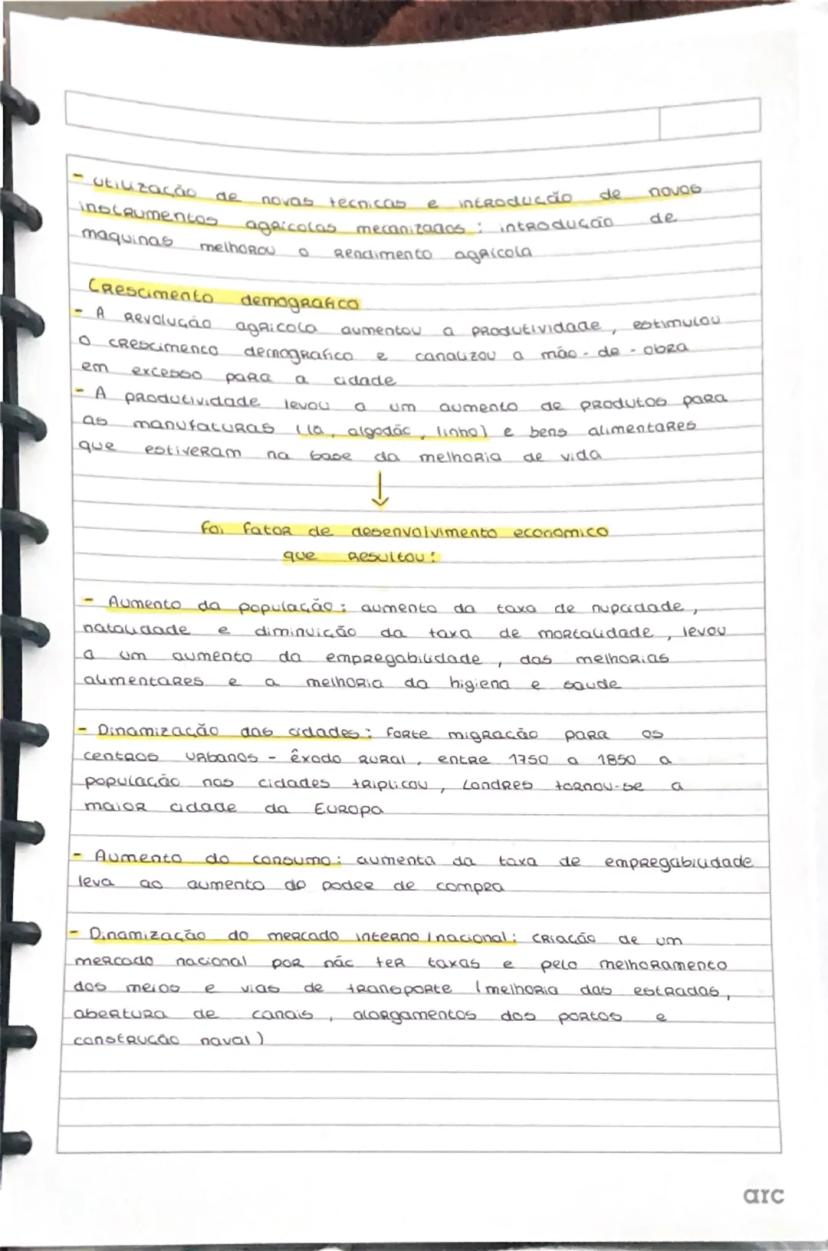 - utilização de novas tecnicas e introdução de novos
instrumentos agrícolas mecanizados : introdução de
maquinas melhorou o rendimento agrícola
Crescimento demografico
- A revolução agricola aumentou a produtividade, estimulou
o crescimento demografico e canalizou a mão-de-obra
em excesso para a cidade
- A produtividade levou a um aumento de produtos para
as manufaturas (lã, algodão, linho) e bens alimentares
que estiveram na base da melhoria de vida
↓
foi fator de desenvolvimento economico
que resultou:
- Aumento da população: aumento da taxa de nupcidade,
natalidade e diminuição da taxa de mortalidade, levou
a um aumento da empregabilidade, das melhorias
alimentares e a melhoria da higiena e saude
- Dinamização das cidades: forte migração para os
centros urbanos - êxodo rural, entre 1750 a 1850 a
população nas cidades triplicou, Londres tornou-se a
maior cidade da Europa
- Aumento do consumo: aumenta da taxa de empregabilidade
leva ao aumento do poder de compra
- Dinamização do mercado interno/nacional: criação de um
mercado nacional por não ter taxas e pelo melhoramento
dos meios e vias de transporte (melhoria das estradas,
abertura de canais, alargamentos dos portos e
construcão naval)
arc